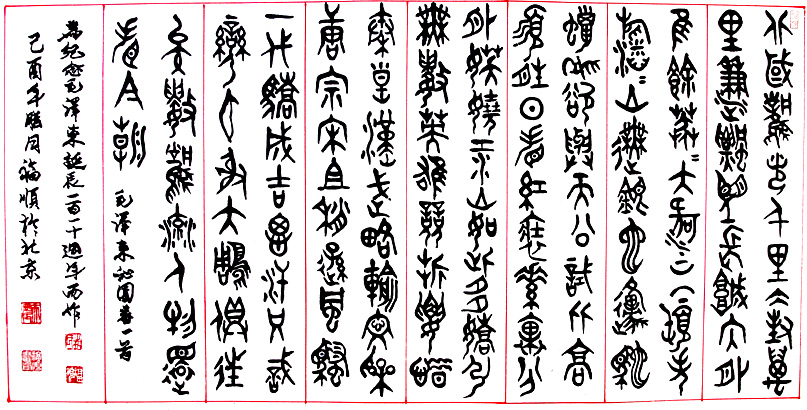 北國風光千里冰封萬
里雪飄望長城內外
惟餘莽〻大河上下頓失
滔〻山舞銀蛇原馳
蠟象欲與天公試比高
須晴日看紅裝素裹分
外妖嬈江山如此多嬌引
無數英雄競折腰惜
秦皇漢武略輸文采
唐宗宋祖稍遜風騷
一代驕成吉思汗只識
彎弓射大鵰俱往
矣數風流人物還
看今朝 毛澤東沁園春一首
為紀念毛澤東誕辰一百一十週年而作
己酉年 月福順於北京